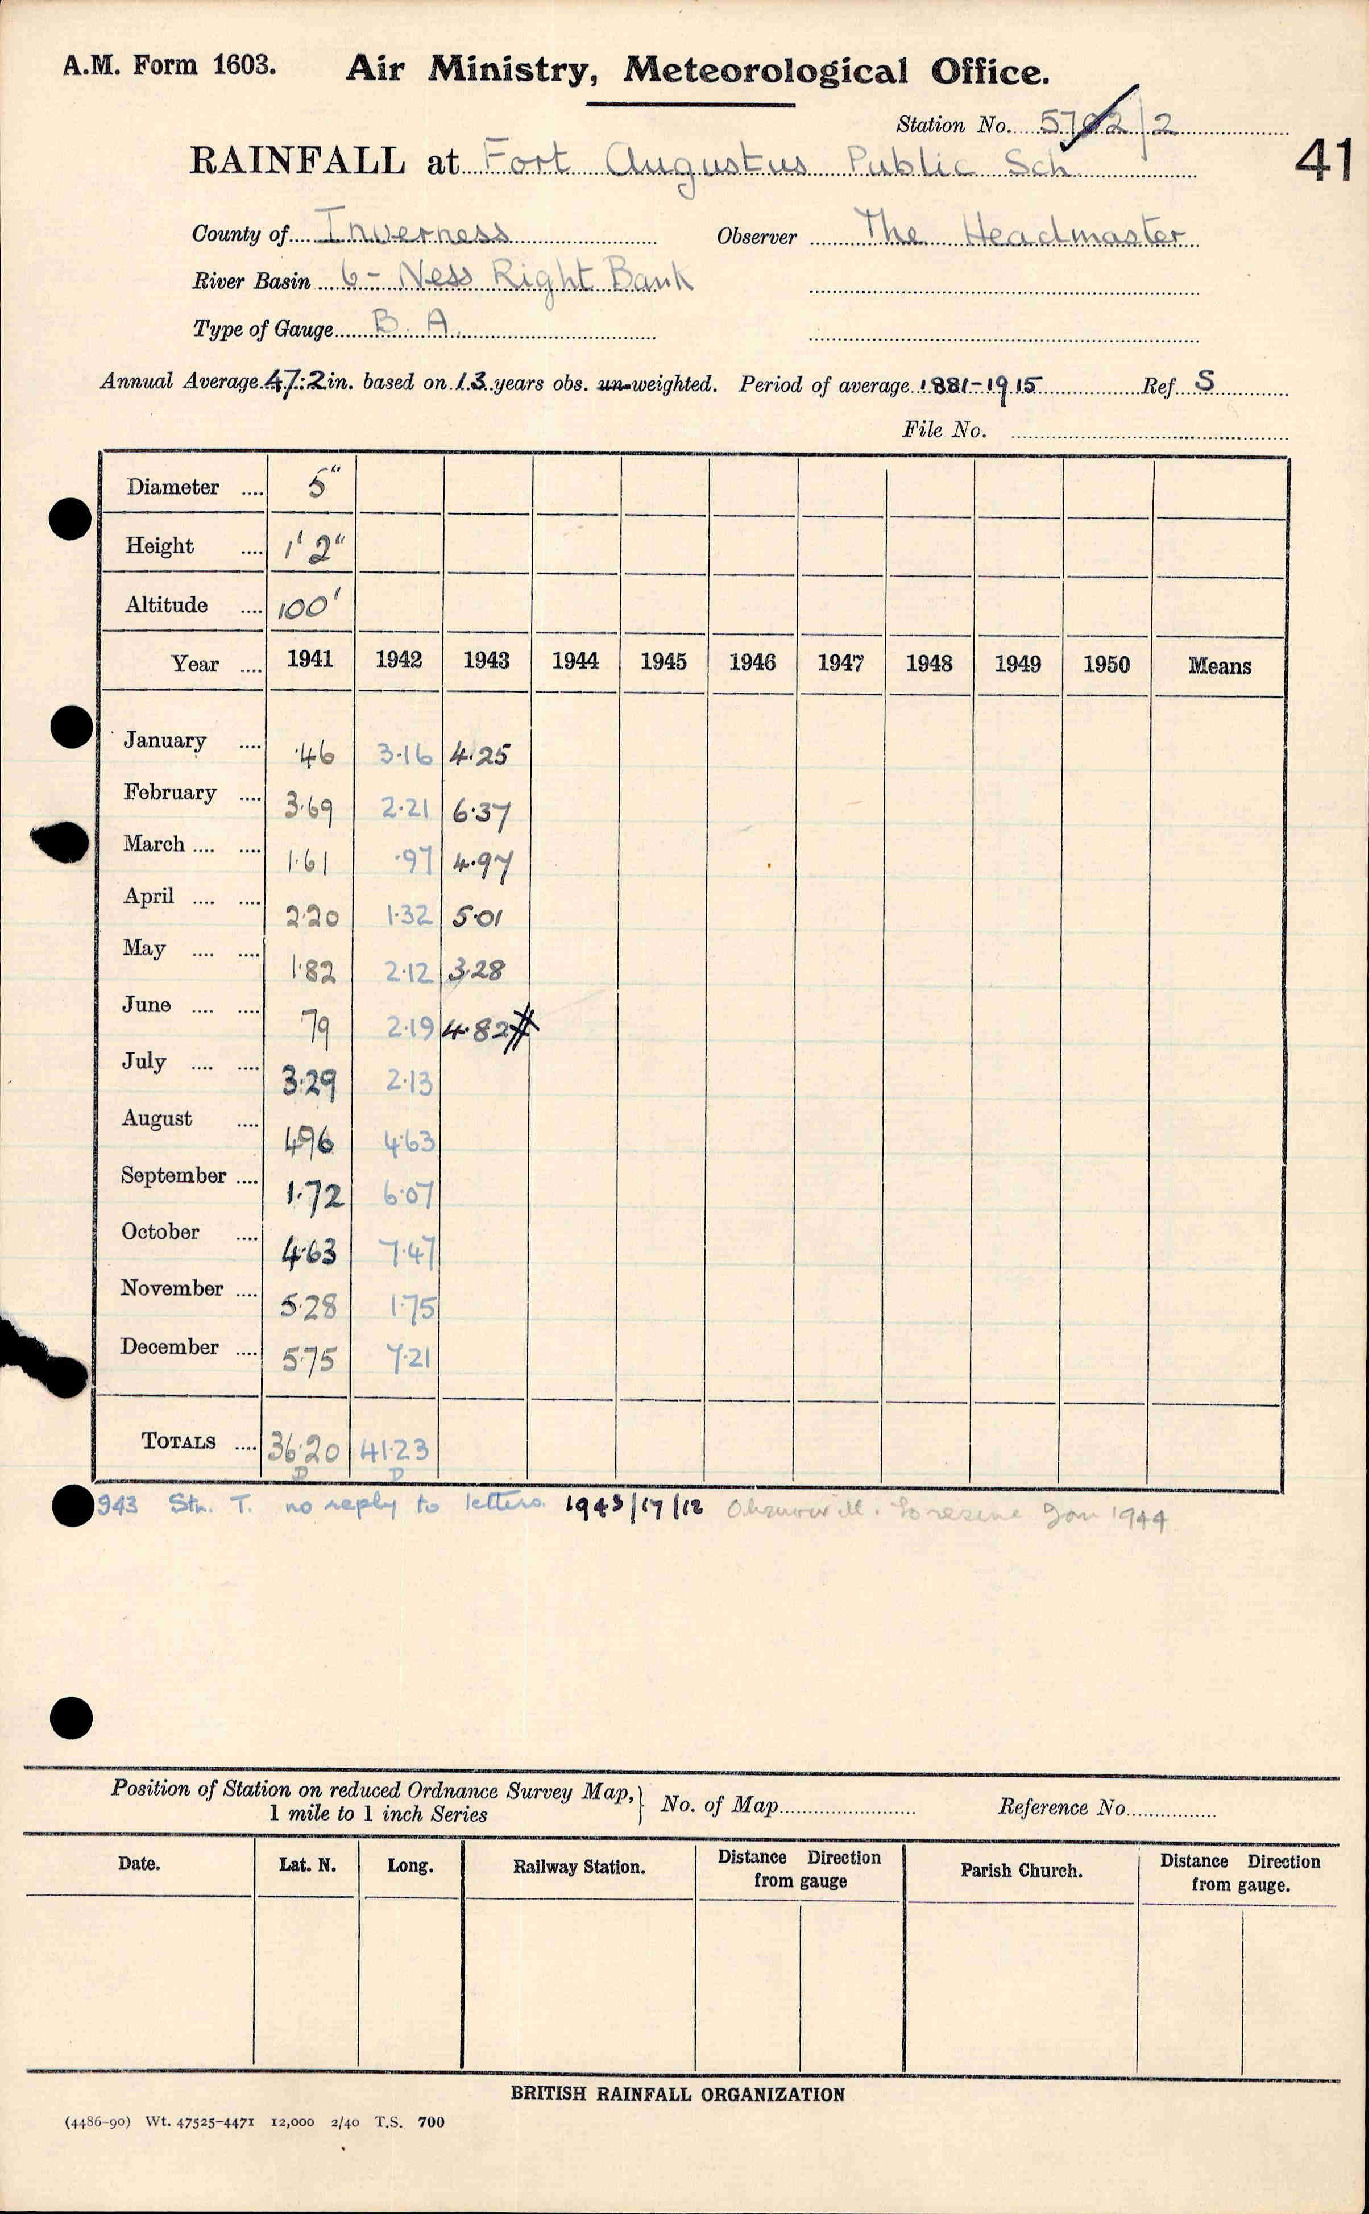 A.M. Form 1603. Air Ministry, Meteorological Office.
Station No. 5702/2
41
RAINFALL at Fort Augustus Public Sch
County of Inverness Observer The Headmaster
River Basin 6 - Ness Right Bank
Type of Gauge B. A.
Annual Average 47.2 in. based on 13 years obs. un-weighted. Period of average 1881-1915 Ref S
File No.
Diameter .... 5"
Height .... 1' 2"
Altitude .... 100'
Year .... 1941 1942 1943 1944 1945 1946 1947 1948 1949 1950 Means
January .... .46 3.16 4.25
February .... 3.69 2.21 6.37
March .... .... 1.61 .97 4.97
April .... .... 2.20 1.32 5.01
May .... .... 1.82 2.12 3.28
June .... .... 79 2.19 4.82 #
July .... .... 3.29 2.13
August .... 4.96 4.63
September .... 1.72 6.07
October .... 4.63 7.47
November .... 5.28 1.75
December .... 5.75 7.21
TOTALS .... 36.20 41.23
D D
943 Stn. T. no reply to letters. 1943/17/12 Jan 1944
Position of Station on reduced Ordnance Survey Map, } No. of Map Reference No.
1 mile to 1 inch Series
Date. Lat. N. Long. Railway Station. Distance Direction from gauge Parish Church. Distance Direction from gauge.
BRITISH RAINFALL ORGANIZATION
(4486-90) Wt. 47525-4471 12,000 2/40 T.S. 700